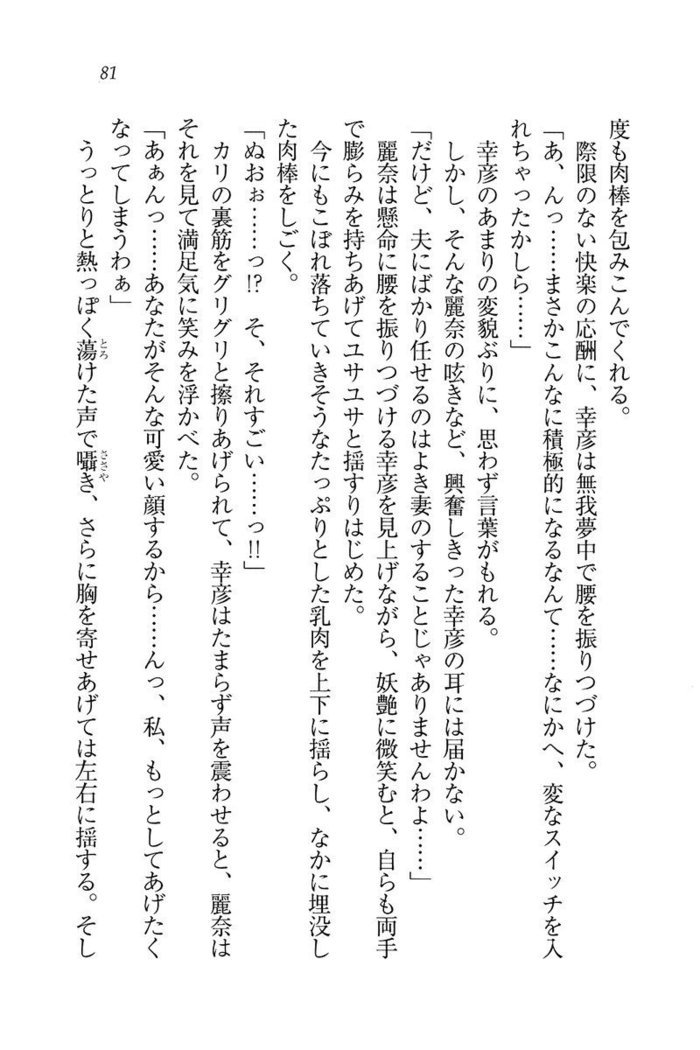 81
度も肉棒を包みこんでくれる。
際限のない快楽の応酬に、幸彦は無我夢中で腰を振りつづけた。
「あ、んっ……まさかこんなに積極的になるなんて……なにかへ、変なスイッチを入
れちゃったかしら……」
幸彦のあまりの変貌ぶりに、思わず言葉がもれる。
しかし、そんな麗奈の呟きなど、興奮しきった幸彦の耳には届かない。
「だけど、夫にばかり任せるのはよき妻のすることじゃありませんわよ……」
麗奈は懸命に腰を振りつづける幸彦を見上げながら、妖艶に微笑むと、自らも両手
で膨らみを持ちあげてユサユサと揺すりはじめた。
今にもこぼれ落ちていきそうなたっぷりとした乳肉を上下に揺らし、なかに埋没し
た肉棒をしごく。
「ぬおぉ……っ!?　そ、それすごい……っ!!」
カリの裏筋をグリグリと擦りあげられて、幸彦はたまらず声を震わせると、麗奈は
それを見て満足気に笑みを浮かべた。
「あぁんっ……あなたがそんな可愛い顔するから……んっ、私、もっとしてあげたく
なってしまうわぁ」
うっとりと熱っぽく蕩とろけた声で囁ささやき、さらに胸を寄せあげては左右に揺する。そし